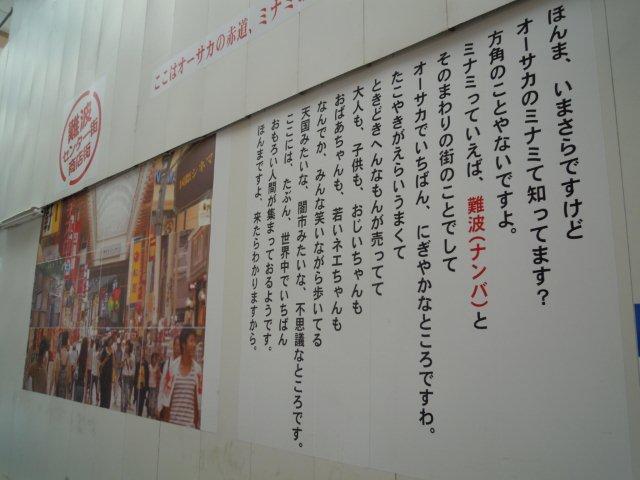 ここはオーサカの赤道、ミナミ
難波
センター街
商店街
国際シネマ
ほんま、いまさらですけど
オーサカのミナミて知ってます？
方角のことやないですよ。
ミナミっていえば、難波（ナンバ）と
そのまわりの街のことでして
オーサカでいちばん、にぎやかなところですわ。
たこやきがえらいうまくて
ときどきへんなもんが売ってて
大人も、子供も、おじいちゃんも
おばあちゃんも、若いネエちゃんも
なんでか、みんな笑いながら歩いてる
天国みたいな、闇市みたいな、不思議なところです。
ここには、たぶん、世界中でいちばん
おもろい人間が集まっておるようです。
ほんまですよ、来たらわかりますから。